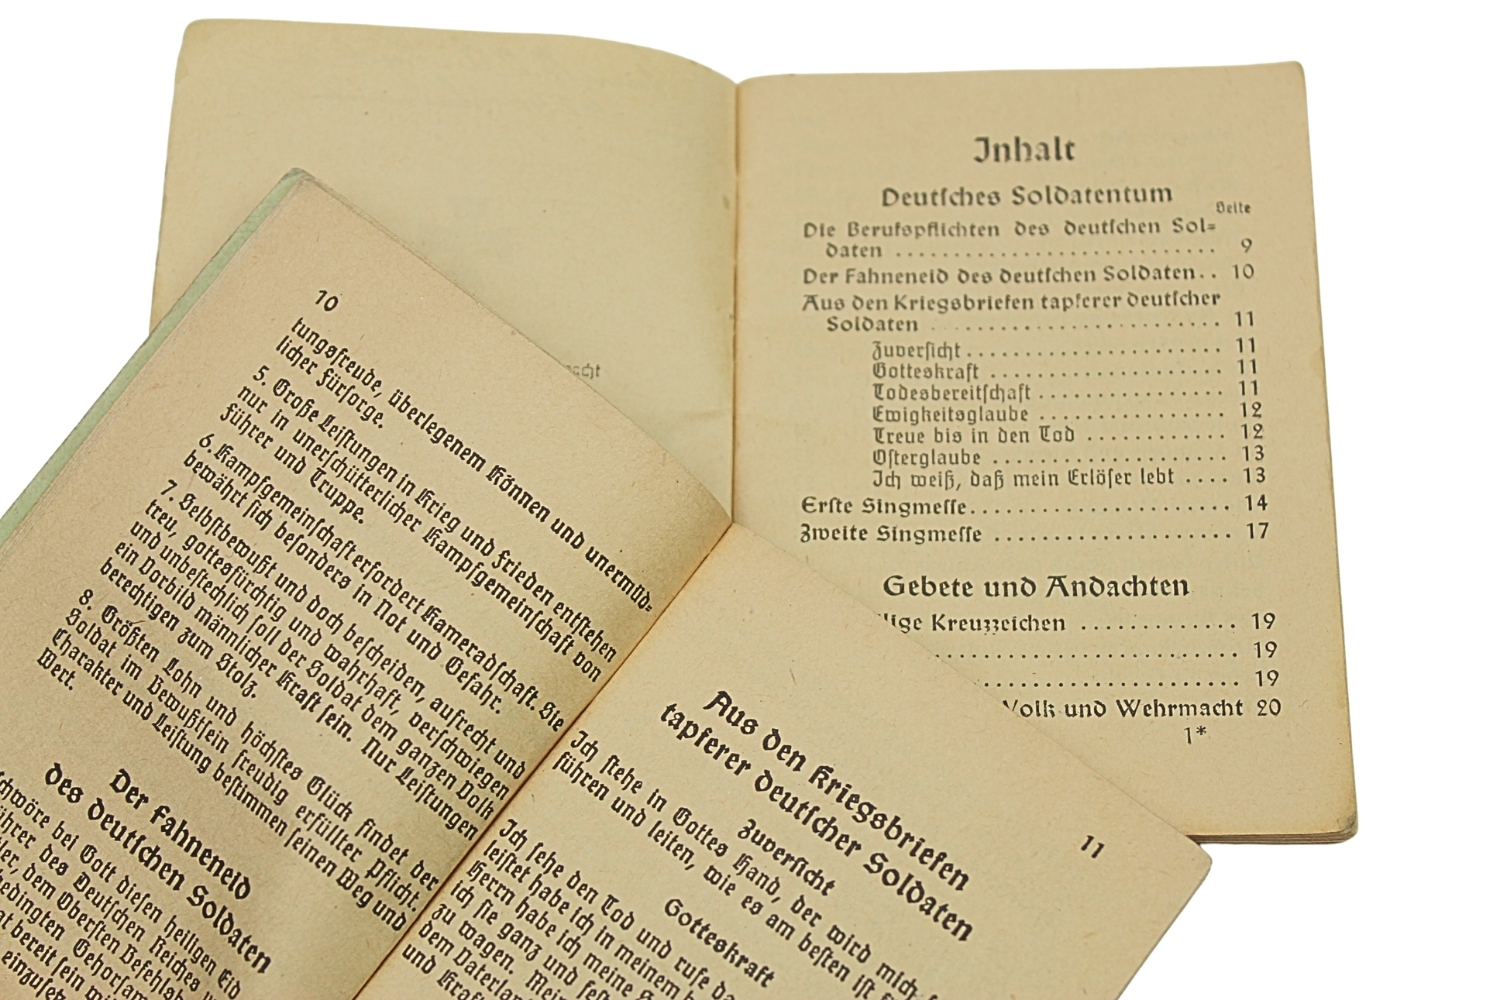 Inhalt
Deutsches Soldatentum
Seite
Die Berufspflichten des deutschen Sol=
daten .................... 9
Der Fahneneid des deutschen Soldaten.. 10
Aus den Kriegsbriefen tapferer deutscher
Soldaten .................... 11
Zuversicht .................... 11
Gotteskraft .................... 11
Todesbereitschaft .................... 11
Ewigkeitsglaube .................... 12
Treue bis in den Tod ............ 12
Osterglaube .................... 13
Ich weiß, daß mein Erlöser lebt .... 13
Erste Singmesse .................... 14
Zweite Singmesse .................... 17
Gebete und Andachten
Kreuzzeichen ............ 19
.................... 19
.................... 19
Volk und Wehrmacht 20
1*
10
tungsfreude, überlegenem Können und unermüd=
licher Fürsorge.
5. Große Leistungen in Krieg und Frieden entstehen
nur in unerschütterlicher Kampfgemeinschaft von
Führer und Truppe.
6. Kampfgemeinschaft erfordert Kameradschaft. Sie
bewährt sich besonders in Not und Gefahr.
7. Selbstbewußt und doch bescheiden, aufrecht und
treu, gottesfürchtig und wahrhaft, verschwiegen
und unbestechlich soll der Soldat dem ganzen Volk
ein Vorbild männlicher Kraft sein. Nur Leistungen
berechtigen zum Stolz.
8. Größten Lohn und höchstes Glück findet der
Soldat im Bewußtsein freudig erfüllter Pflicht.
Charakter und Leistung bestimmen seinen Weg und
Wert.
Der Fahneneid
des deutschen Soldaten
bei Gott diesen heiligen Eid
des Deutschen Reiches
dem Obersten
Gehorsam
bereit sein
11
Aus den Kriegsbriefen
tapferer deutscher Soldaten
Zuversicht
Ich stehe in Gottes Hand, der wird mich
führen und leiten, wie es am besten ist
Gotteskraft
Ich sehe den Tod und rufe
leistet habe ich in meinem
Herrn habe ich meine
ich sie ganz und
zu wagen.
dem
und